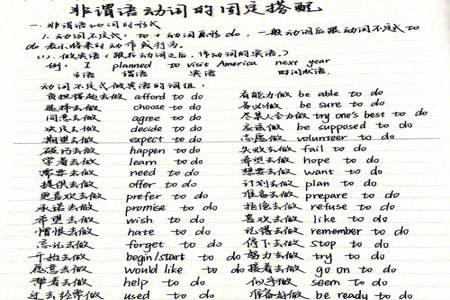 非谓语动词的固定搭配
一.非谓语动词的形式
1.动词不定式: to + 动词原形 do, 一般动词后跟不定式 to
do 表示将来的动作或行为.
(1).做宾语(跟在动词之后,作动词的宾语).
例: I planned to visit America next year
主语 谓语 宾语 时间状语.
动词不定式做宾语的词组:
负担得起去做 afford to do 有能力做 be able to do
选择去做 choose to do 务必做 be sure to do
同意去做 agree to do 尽某人全力做 try one's best to do
决定去做 decide to do 应该做 be supposed to do
期望去做 expect to do 志愿做 volunteer to do
碰巧去做 happen to do 失败去做 fail to do
学着去做 learn to do 希望去做 hope to do
需要去做 need to do 想要去做 want to do
提供去做 offer to do 计划去做 plan to do
更喜欢去做 prefer to do 准备去做 prepare to do
承诺去做 promise to do 拒绝去做 refuse to do
希望去做 wish to do 喜欢去做 like to do
憎恨去做 hate to do 记得去做 remember to do
忘记去做 forget to do 停下去做 stop to do
开始去做 begin/start to do 努力去做 try to do
愿意去做 would like to do 接着去做 go on to do
帮着去做 help to do 似乎做 seem to do
过去经常做 used to do 准备好做 be ready to do